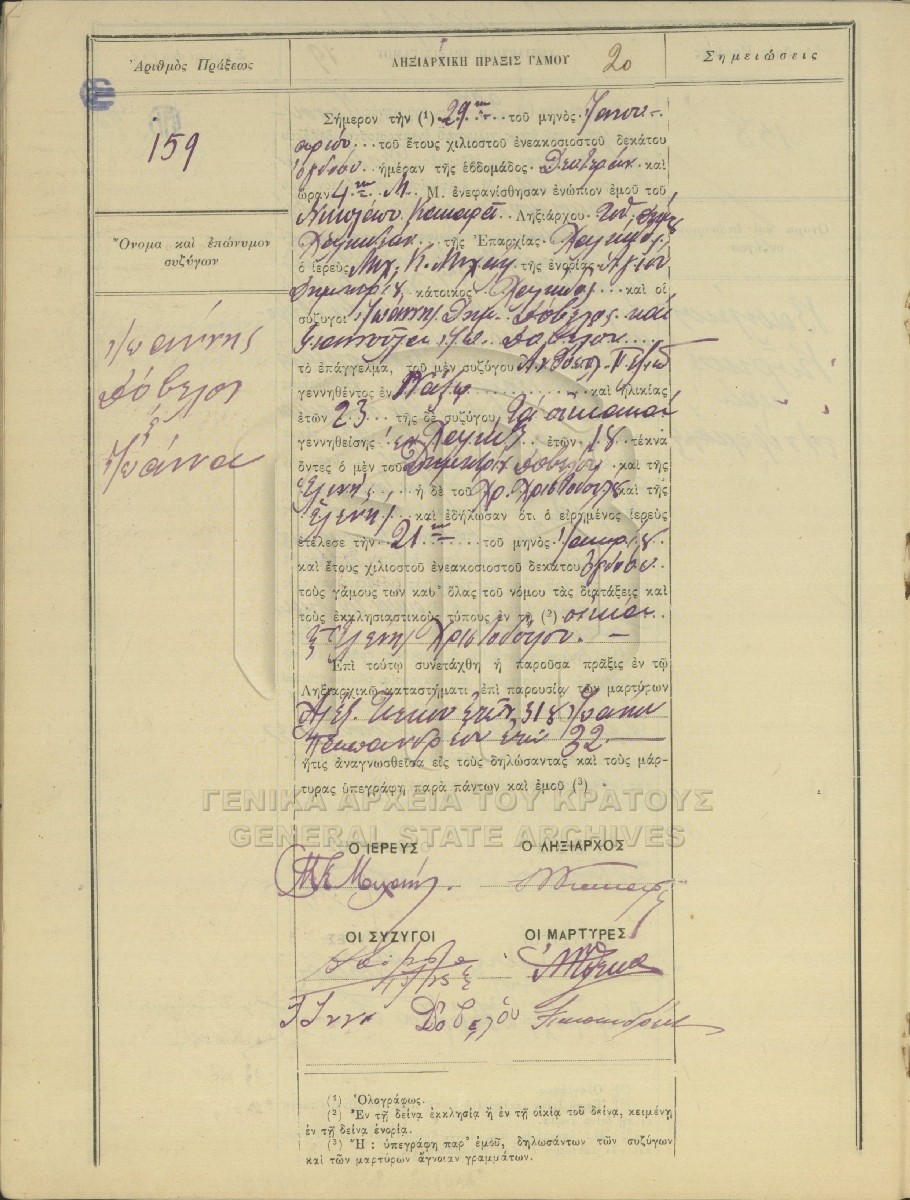 Ἀριθμὸς Πράξεως
ΛΗΞΙΑΡΧΙΚΗ ΠΡΑΞΙΣ ΓΑΜΟΥ 20
Σημειώσεις
159
Ὄνομα καὶ ἐπώνυμον
συζύγων
Ἰωάννης
Δόβελος
&
Ἰωάννα
Σήμερον τὴν (1) 29ην τοῦ μηνὸς Ἰανου-
αρίου τοῦ ἔτους χιλιοστοῦ ἐνεακοσιοστοῦ δεκάτου
ὀγδόου ἡμέραν τῆς ἑβδομάδος Δευτέραν καὶ
ὥραν 4ην Μ. Μ. ἐνεφανίσθησαν ἐνώπιον ἐμοῦ τοῦ
Νικολάου Ληξιάρχου τοῦ Δήμου
Χαλκιδέων τῆς Ἐπαρχίας Χαλκίδος
ὁ ἱερεὺς Μιχ. τῆς ἐνορίας Ἁγίου
Δημητρίου κάτοικος Χαλκίδος καὶ οἱ
σύζυγοι Ἰωάννης Δημ. Δόβελος καὶ
Ἰω. Δοβέλου
τὸ ἐπάγγελμα, τοῦ μὲν συζύγου
γεννηθέντος ἐν καὶ ἡλικίας
ἐτῶν 23 τῆς δὲ συζύγου Τὰ οἰκιακά
γεννηθείσης ἐν Χαλκίδι ἐτῶν 18 τέκνα
ὄντες ὁ μὲν τοῦ Δημητρίου Δοβέλου καὶ τῆς
Ἑλένης, ἡ δὲ τοῦ Χρ. Χριστοδούλου καὶ τῆς
Ἑλένης καὶ ἐδήλωσαν ὅτι ὁ εἰρημένος ἱερεὺς
ἐτέλεσε τὴν 21ην τοῦ μηνὸς Ἰανουαρίου
καὶ ἔτους χιλιοστοῦ ἐνεακοσιοστοῦ δεκάτου ὀγδόου
τοὺς γάμους των καθ' ὅλας τοῦ νόμου τὰς διατάξεις καὶ
τοὺς ἐκκλησιαστικοὺς τύπους ἐν τῇ (2) οἰκίᾳ
Ἑλένης Χριστοδούλου.
Ἐπὶ τούτῳ συνετάχθη ἡ παροῦσα πρᾶξις ἐν τῷ
Ληξιαρχικῷ καταστήματι ἐπὶ παρουσίᾳ τῶν μαρτύρων
Ἀλεξ. ἐτῶν 31 & Ἰωάννου
ἐτῶν 32
ἥτις ἀναγνωσθεῖσα εἰς τοὺς δηλώσαντας καὶ τοὺς μάρ-
τυρας ὑπεγράφη παρὰ πάντων καὶ ἐμοῦ (3)
ΓΕΝΙΚΑ ΑΡΧΕΙΑ ΤΟΥ ΚΡΑΤΟΥΣ
GENERAL STATE ARCHIVES
Ο ΙΕΡΕΥΣ
Ο ΛΗΞΙΑΡΧΟΣ
ΟΙ ΣΥΖΥΓΟΙ
ΟΙ ΜΑΡΤΥΡΕΣ
Δοβελου
(1) Ὁλογράφως.
(2) Ἐν τῇ δεῖνα ἐκκλησίᾳ ἢ ἐν τῇ οἰκίᾳ τοῦ δεῖνα, κειμένῃ
ἐν τῇ δεῖνα ἐνορίᾳ.
(3) Ἢ : ὑπεγράφη παρ' ἐμοῦ, δηλωσάντων τῶν συζύγων
καὶ τῶν μαρτύρων ἄγνοιαν γραμμάτων.